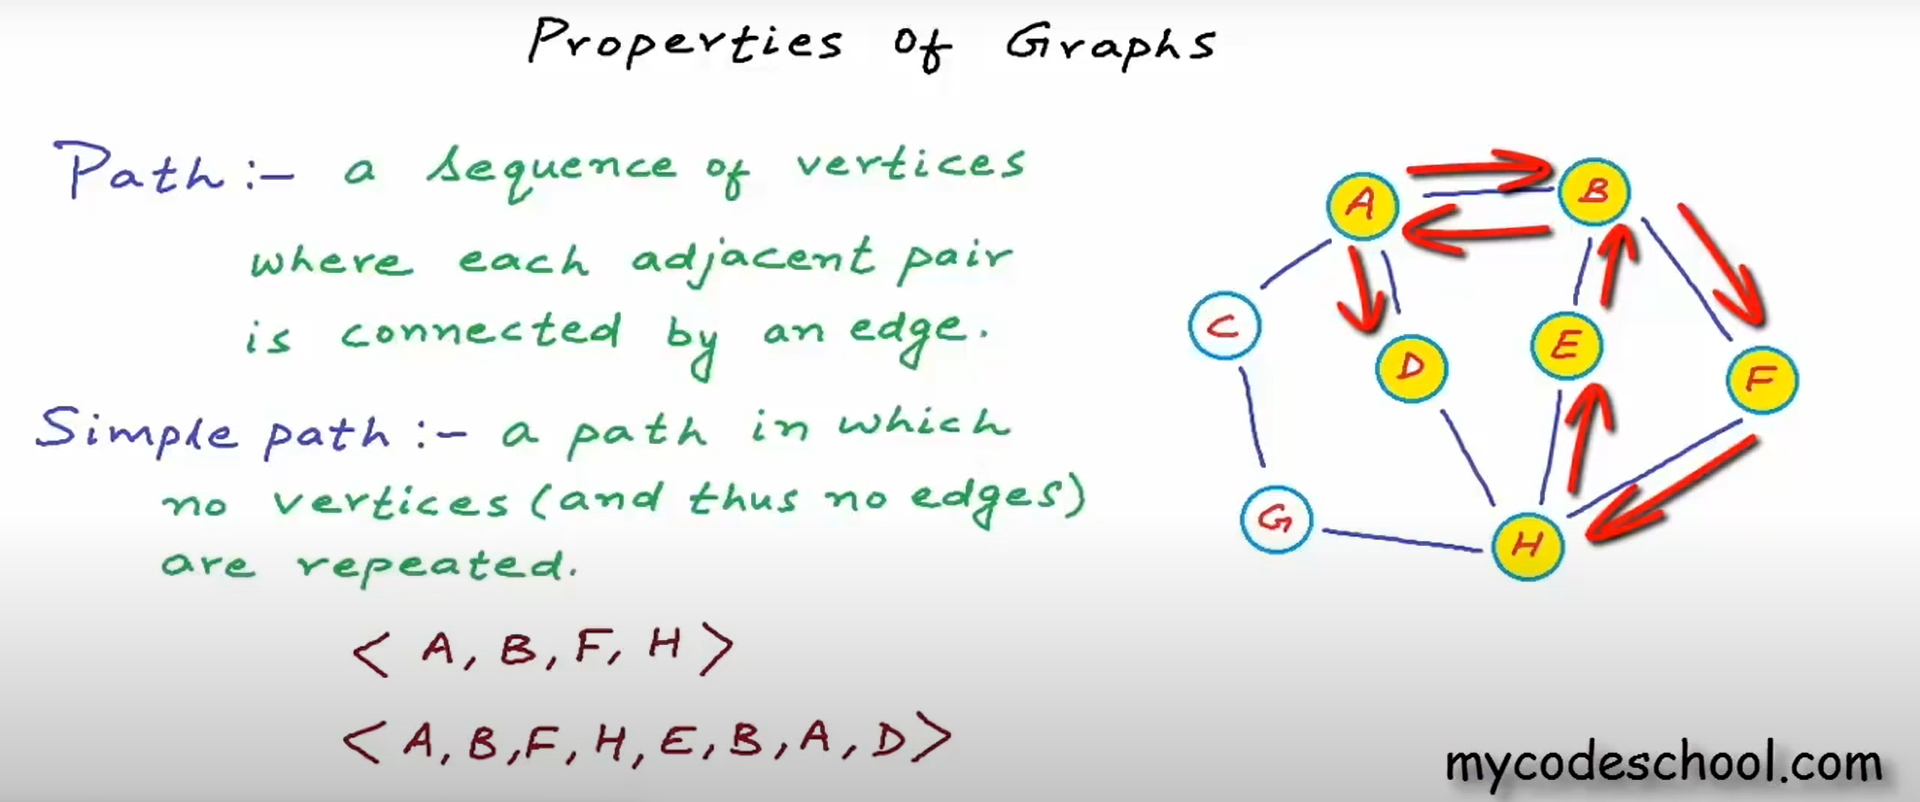 Properties of Graphs
Path :- a sequence of vertices
where each adjacent pair
is connected by an edge.
Simple path :- a path in which
no vertices (and thus no edges)
are repeated.
< A, B, F, H >
< A, B, F, H, E, B, A, D >
A
B
C
D
E
F
G
H
mycodeschool.com